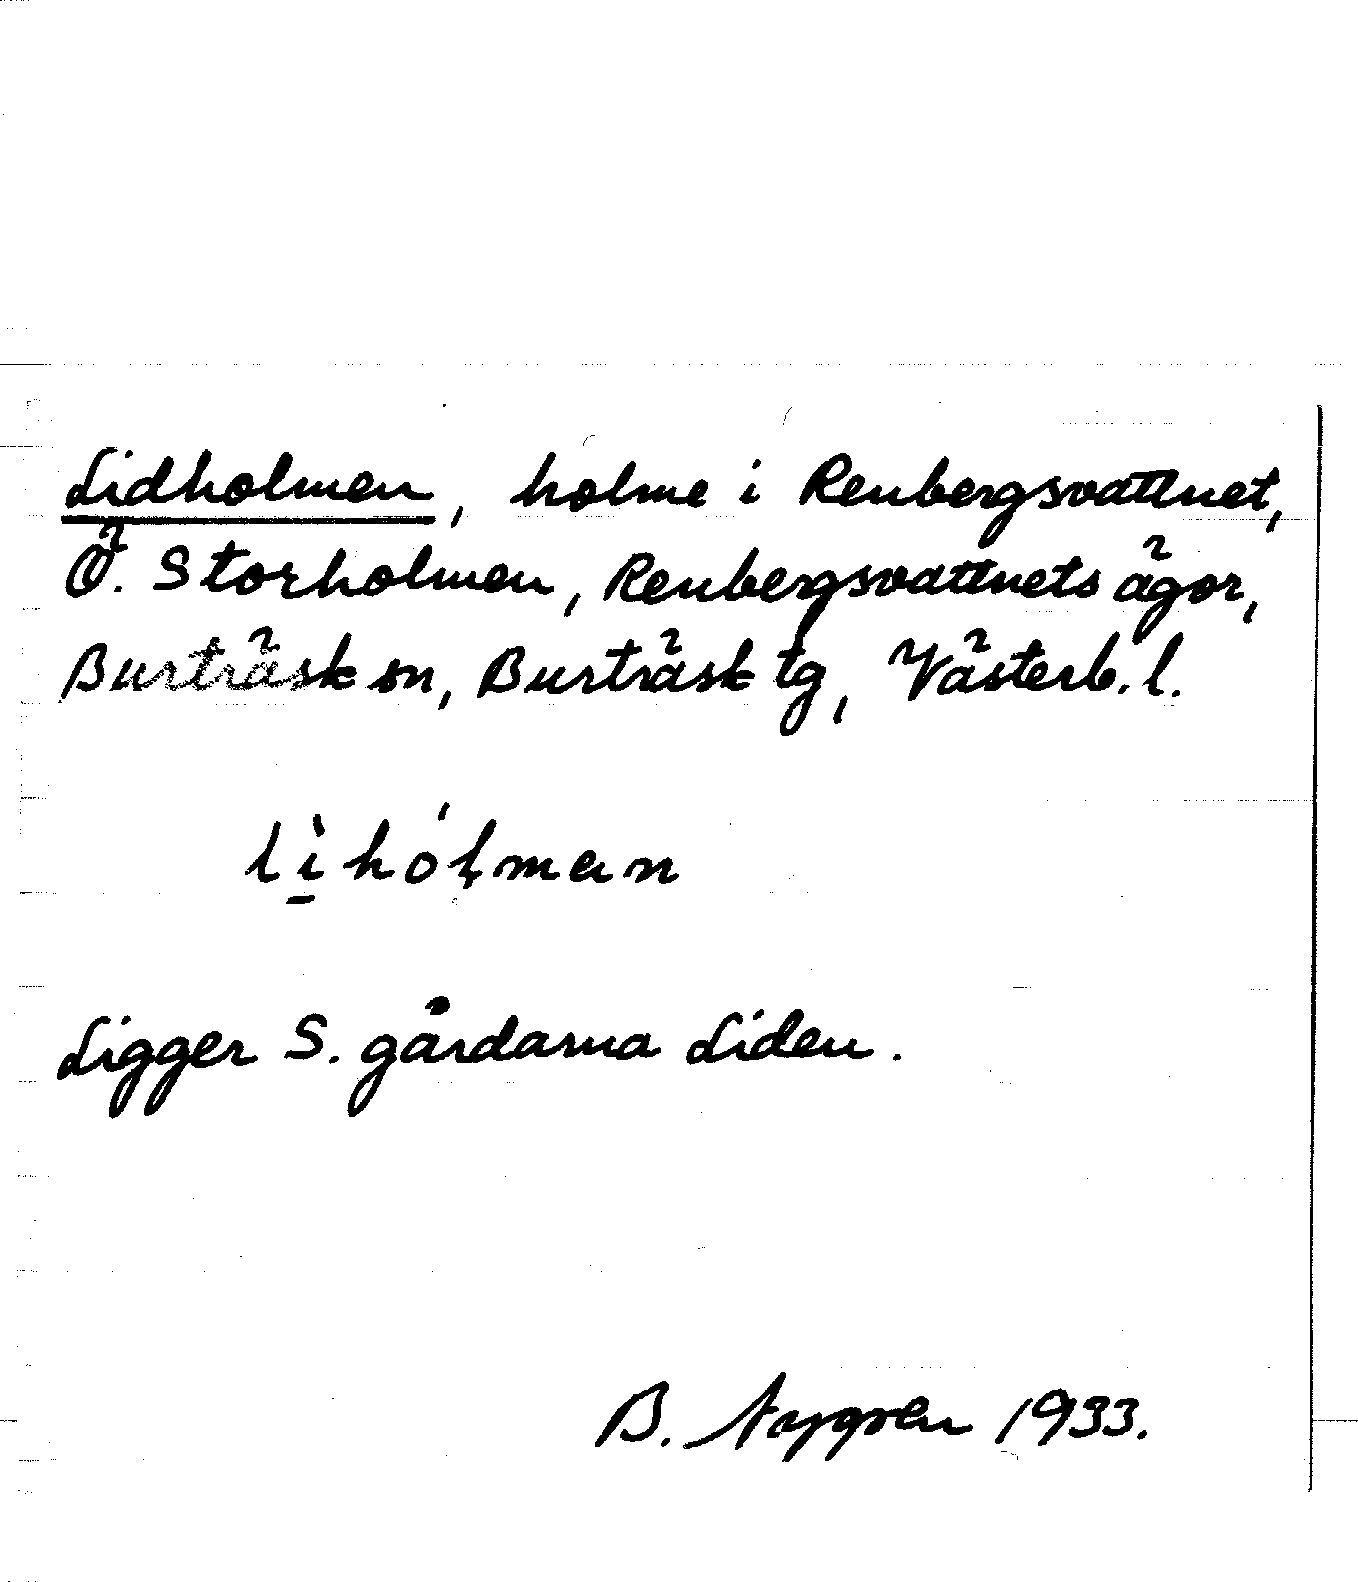 Lidholmen, holme i Renbergsvattnet,
Ö. Storholmen, Renbergsvattnets ägor,
Burträsk sn, Burträsk tg, Västerb. l.
lìhólman
Ligger S. gårdarna Liden.
B. Nygren 1933.